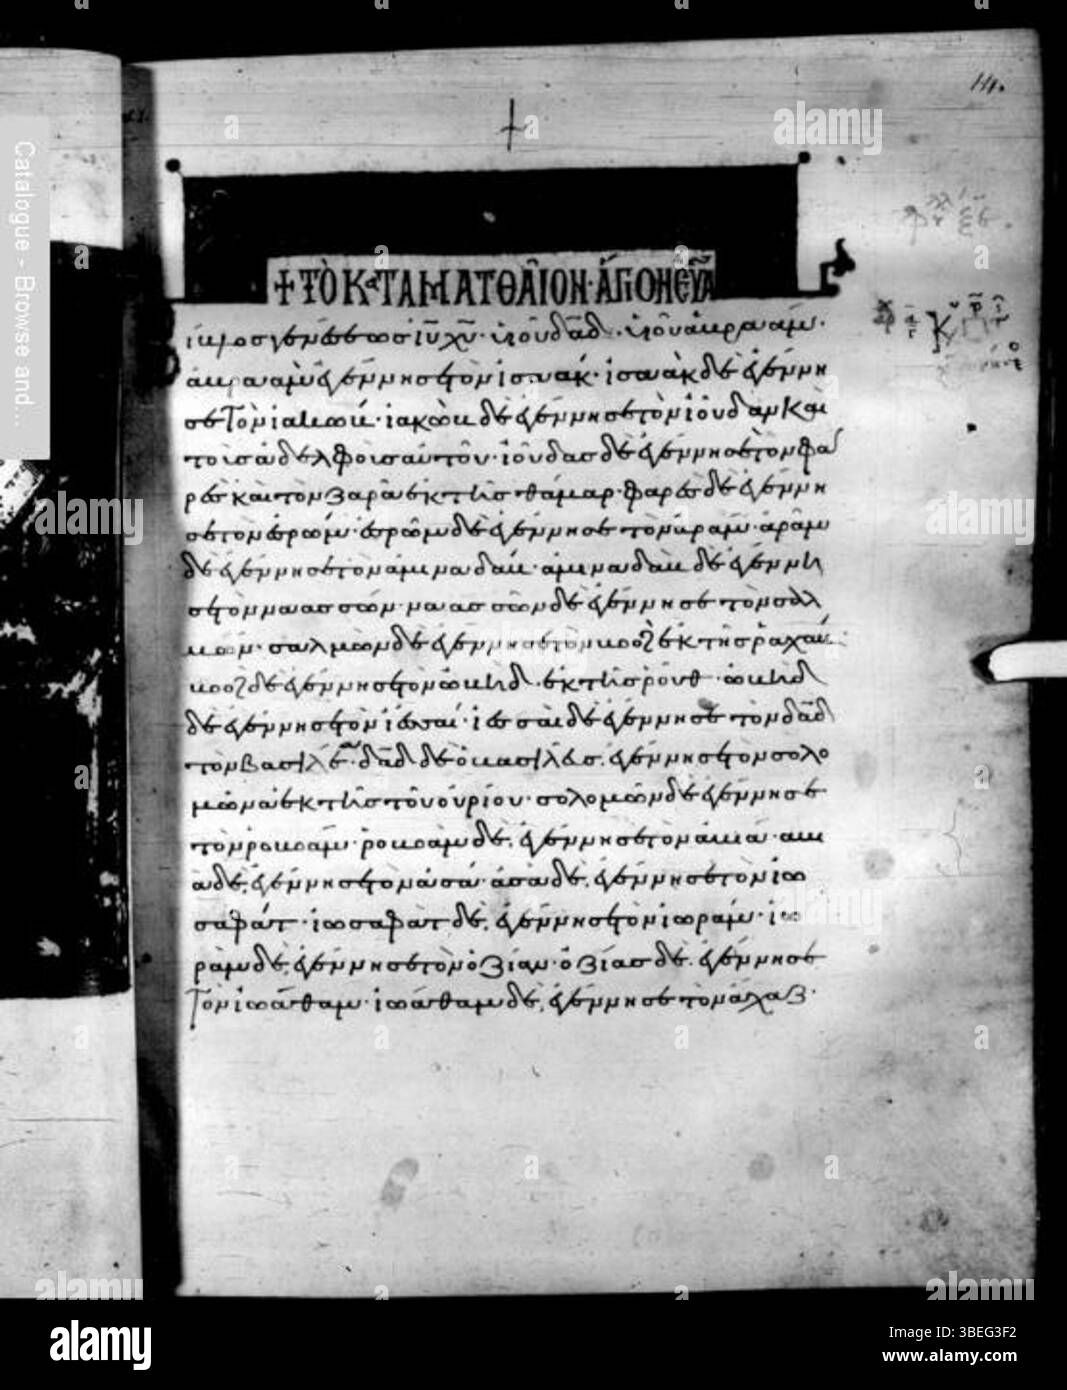 + ΤΟ ΚΑΤΑ ΜΑΤΘΑΙΟΝ ΑΓΙΟΝ ΕΥΑ
γενέσεως ἰῡ χῡ· υἱοῦ δᾱδ· υἱοῦ ἀβραάμ·
ἀβραὰμ ἐγέννησε τὸν ἰσαάκ· ἰσαὰκ δὲ ἐγέννη
σε τὸν ἰακώβ· ἰακὼβ δὲ ἐγέννησε τὸν ἰούδαν καὶ
τοὺς ἀδελφοὺς αὐτοῦ· ἰούδας δὲ ἐγέννησε τὸν φα
ρὲς καὶ τὸν ζαρὰ ἐκ τῆς θάμαρ· φαρὲς δὲ ἐγέννη
σε τὸν ἐσρώμ· ἐσρὼμ δὲ ἐγέννησε τὸν ἀράμ· ἀρὰμ
δὲ ἐγέννησε τὸν ἀμιναδάβ· ἀμιναδὰβ δὲ ἐγέννη
σε τὸν ναασσών· ναασσὼν δὲ ἐγέννησε τὸν σαλ
μών· σαλμὼν δὲ ἐγέννησε τὸν βοὸζ ἐκ τῆς ῥαχάβ·
βοὸζ δὲ ἐγέννησε τὸν ὠβήδ· ἐκ τῆς ῥούθ· ὠβὴδ
δὲ ἐγέννησε τὸν ἰεσσαί· ἰεσσαὶ δὲ ἐγέννησε τὸν δᾱδ
τὸν βασιλέα· δᾱδ δὲ ὁ βασιλεὺς ἐγέννησε τὸν σολο
μῶνα ἐκ τῆς τοῦ οὐρίου· σολομὼν δὲ ἐγέννησε
τὸν ῥοβοάμ· ῥοβοὰμ δὲ ἐγέννησε τὸν ἀβιά· ἀβι
ὰ δὲ ἐγέννησε τὸν ἀσά· ἀσὰ δὲ ἐγέννησε τὸν ἰω
σαφάτ· ἰωσαφὰτ δὲ ἐγέννησε τὸν ἰωράμ· ἰω
ρὰμ δὲ ἐγέννησε τὸν ὀζίαν· ὀζίας δὲ ἐγέννησε
τὸν ἰωάθαμ· ἰωάθαμ δὲ ἐγέννησε τὸν ἄχαζ·
Catalogue - Browse and...
alamy
Image ID: 3BEG3F2
www.alamy.com